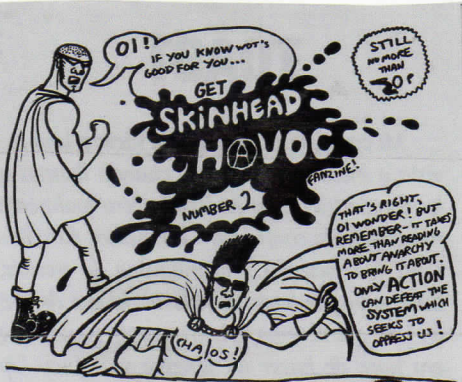 OI!
IF YOU KNOW WOT'S
GOOD FOR YOU...
GET
SKINHEAD
HAVOC
FANZINE!
NUMBER 2
STILL
NO MORE
THAN
20P
THAT'S RIGHT,
OI WONDER! BUT
REMEMBER - IT TAKES
MORE THAN READING
ABOUT ANARCHY
TO BRING IT ABOUT.
ONLY ACTION
CAN DEFEAT THE
SYSTEM WHICH
SEEKS TO
OPPRESS US!
CHAOS!